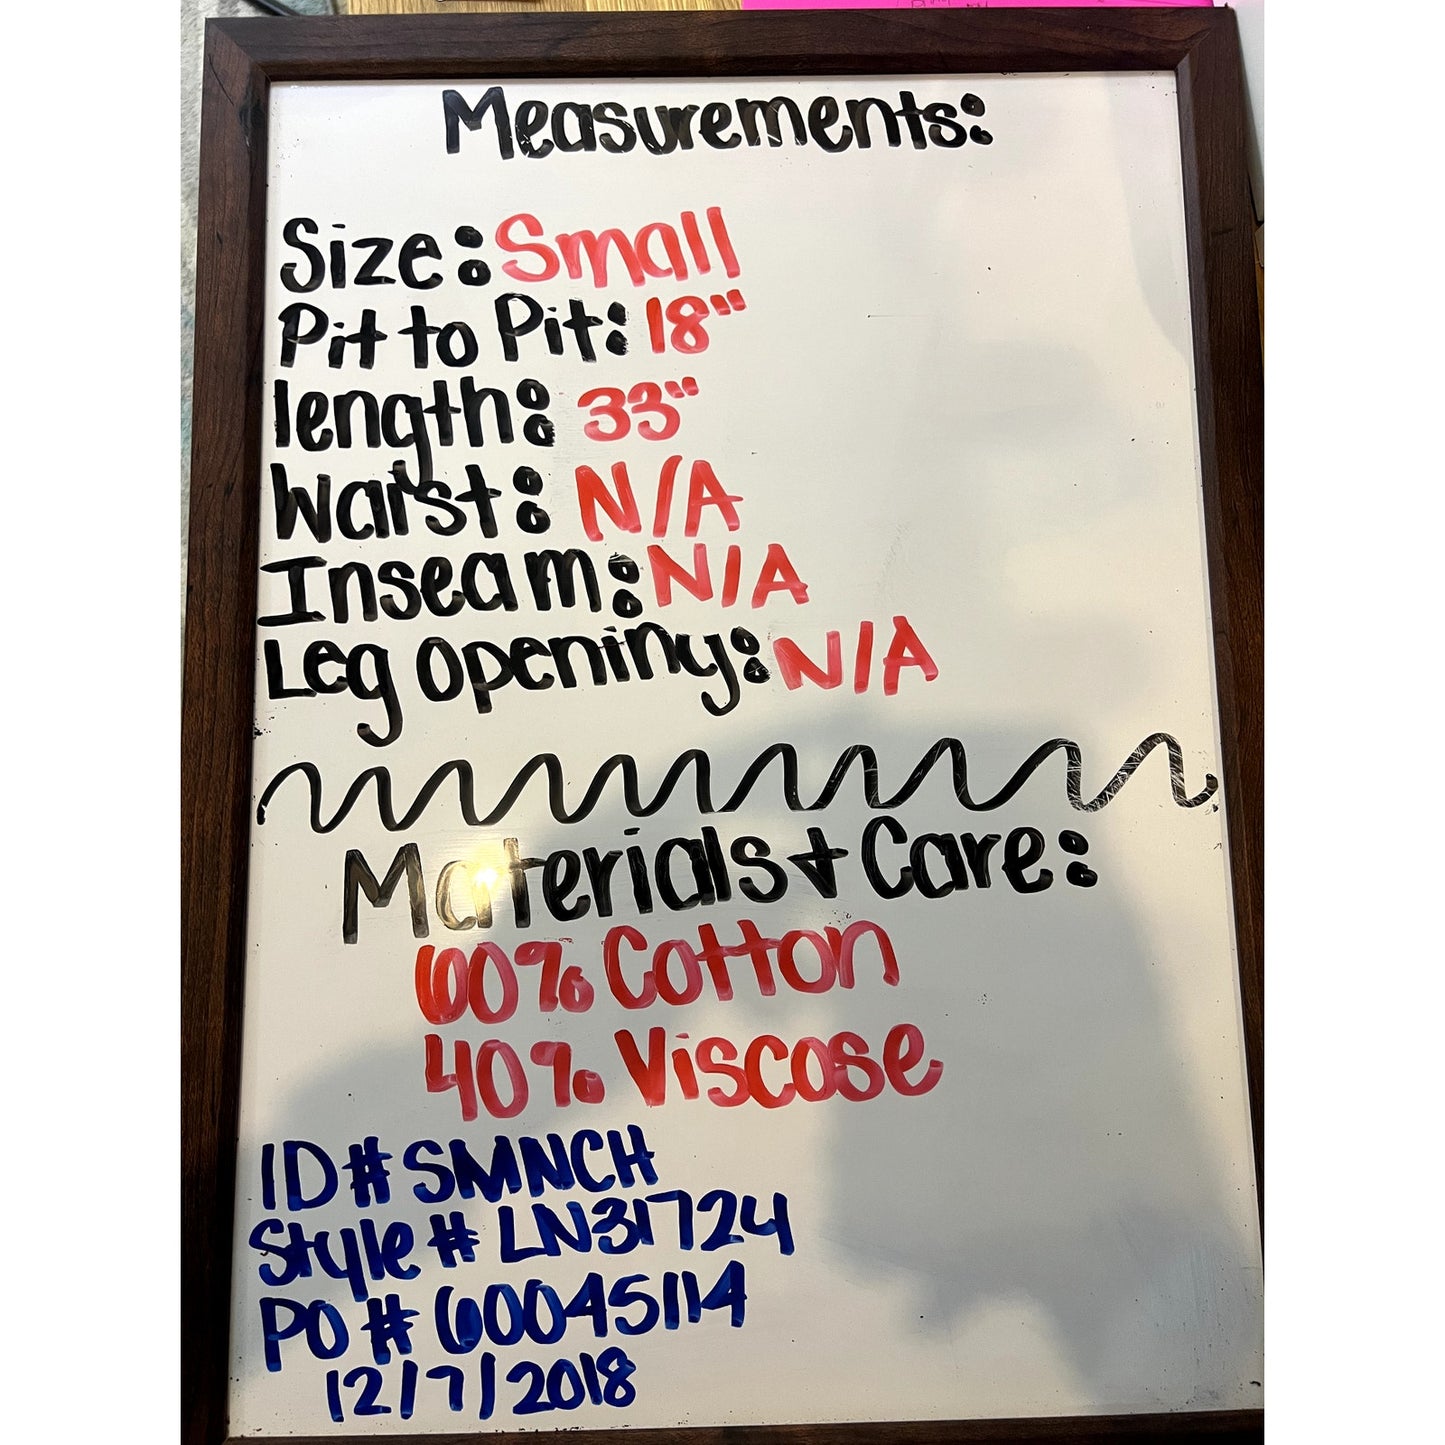 Measurements:
Size: Small
Pit to Pit: 18"
length: 33"
Waist: N/A
Inseam: N/A
Leg Opening: N/A
Materials + Care:
60% Cotton
40% Viscose
ID# SMNCH
Style # LN31724
PO # 60045114
12/7/2018